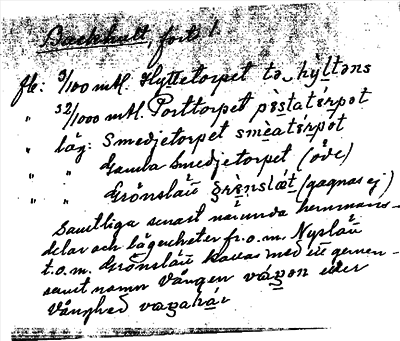 Backhult, forts!
fle: 3/100 mtl. Hyttetorpet tə hyltəns
" 32/1000 mtl. Porttorpet pèstatérpət
" läg: Smedjetorpet smèatérpət
" " Gamla Smedjetorpet (öde)
" " Grönslätt grènslǽt (gagnas ej)
Samtliga senast nämnda hemmans-
delar och lägenheter fr. o. m. Nyslätt
t.o.m. Grönslätt kallas med ett gemen-
samt namn Vången vàŋən eller
Vånghed